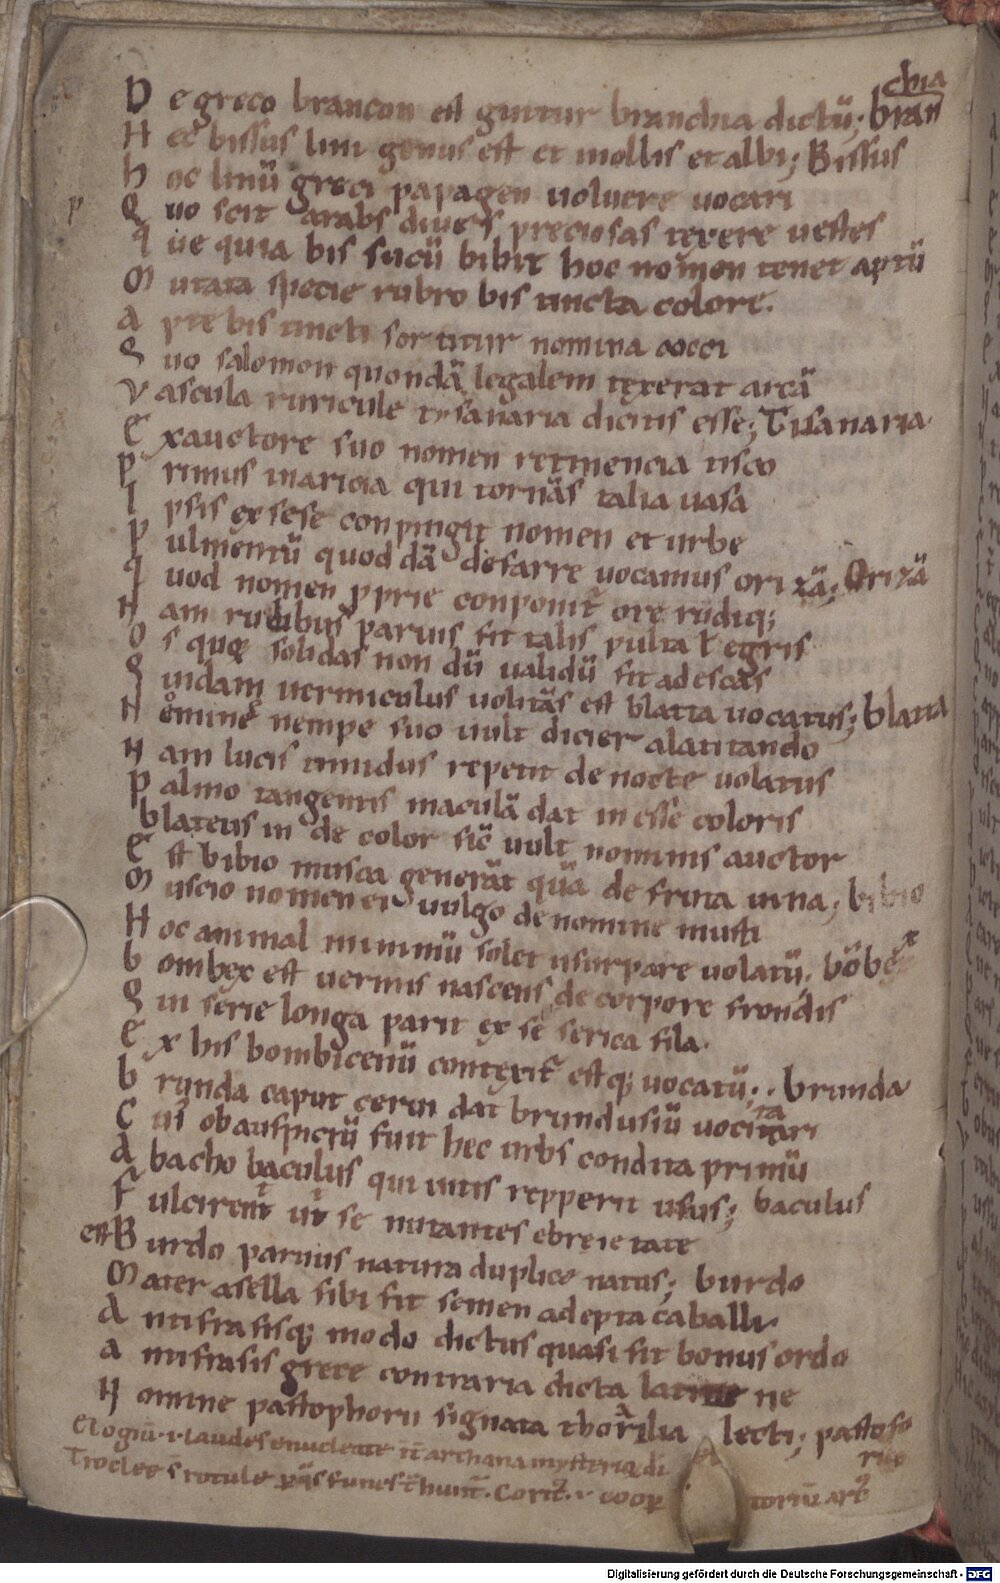 chia
De greco brancon est guttur branchia dictū; bran
Hec bissus lini genus est et mollis et albi; Bissus
hoc linū greci papagen voluere vocari
p Quo scit arabs dives preciosas texere vestes
que quia bis sucū bibit hoc nomen tenet aptū
Mutata specie rubro bis tincta colore.
apte bis tincti sortitur nomina cocci
Quo salomon quondā legalem texerat arcā
Vascula ruricule tysanaria dicitis esse; Tisanaria.
Ex auctore suo nomen retinencia tisco
primus in aricia qui tornās talia vasa
Ipsis ex sese conpingit nomen et urbe
pulmentū quoddā de farre vocamus orizā; Orizā
quod nomen pprie conponit ore rudiq;
Nam rudibus parvis fit talis pulta ł egris
Os quoq solidas non dū validū sit ad escas
Quidam vermiculus volitās est blatta vocatus; blatta
Nomine nempe suo vult dicier a latitando
Nam lucis timidus repetit de nocte volatus
Palmo tangentis maculā dat inesse coloris
blateus inde color sic vult nominis auctor
Est bibio musca generāt quā de frina vina; bibio
Muscio nomen ei vulgo de nomine musti
Hoc animal minimū solet usurpare volatū. bōbex
bombex est vermis nascens de corpore frondis
Qui serie longa parit ex se serica fila.
Ex his bombicenū contexit estq; vocatū; . brunda
brunda caput cervi dat brundusiū vocitari
Cui ob auspiciū fuit hec urbs condita primū
A bacho baculus qui vitis repperit usus; baculus
Fulcirent ut se nutantes ebreietate
est Burdo parvus natura duplice natus; burdo
Mater asella sibi fit semen adepta caballi.
Antifrasisq; modo dictus quasi sit bonus ordo
antifrasis grece contraria dicta latine ne
Nomine pastophorii signata thorilia lecti; pastofo
Elogiū .i. laudes enucleate archana mysteria di rio
Trocleę s rotule funes